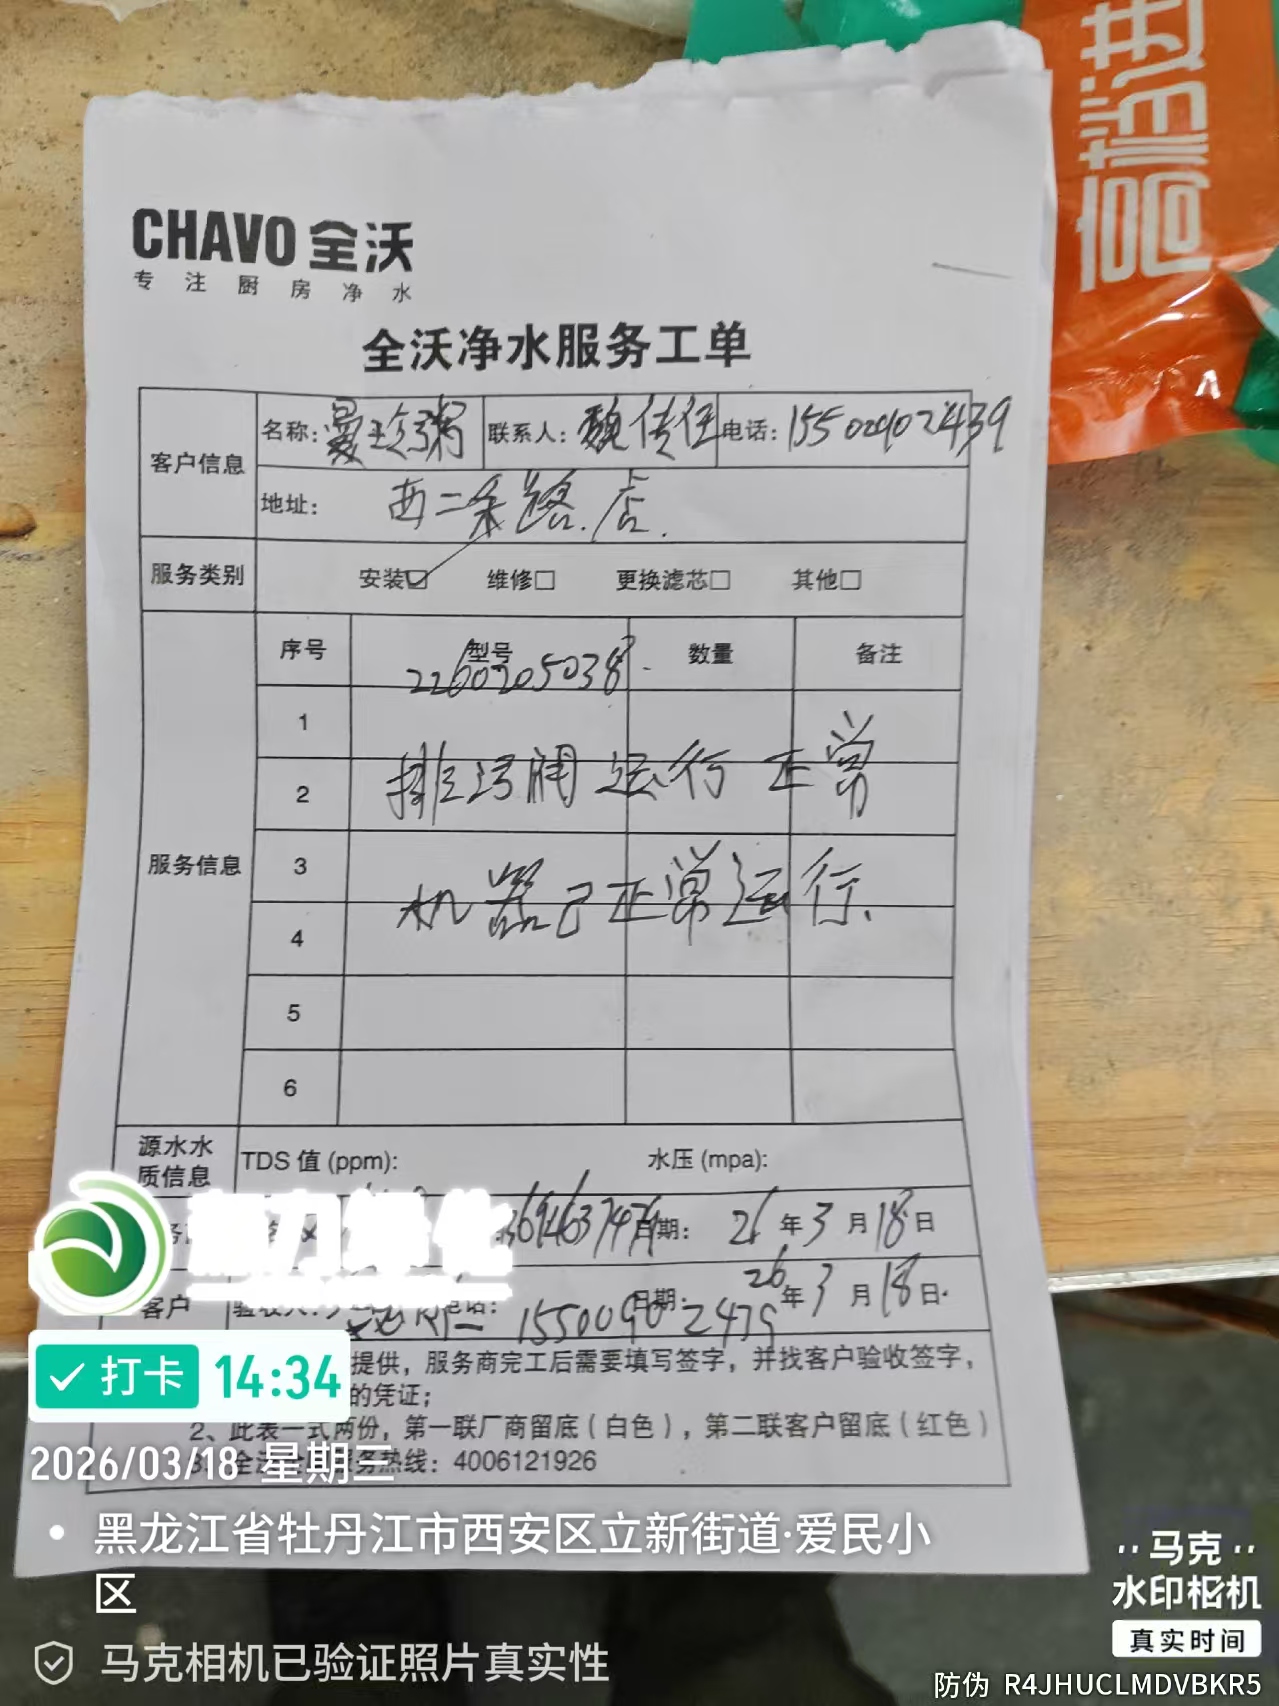 高粉进
CHAVO 全沃
专注厨房净水
全沃净水服务工单
客户信息 名称: 联系人: 魏传任 电话: 15504902439
地址: 西二条路.店.
服务类别 安装☑ 维修□ 更换滤芯□ 其他□
服务信息 序号 型号 数量 备注
2260205038
1
排污阀运行正常
2
3
机器已正常运行.
4
5
6
源水水质信息 TDS 值 (ppm): 水压 (mpa):
日期: 26年3月18日
客户 验收人: 电话: 日期: 26年3月18日
提供，服务商完工后需要填写签字，并找客户验收签字，
的凭证；
2、此表一式两份，第一联厂商留底（白色），第二联客户留底（红色）
服务热线：4006121926
打卡 14:34
2026/03/18 星期三
黑龙江省牡丹江市西安区立新街道·爱民小
区
马克相机已验证照片真实性
马克
水印相机
真实时间
防伪 R4JHUCLMDVBKR5